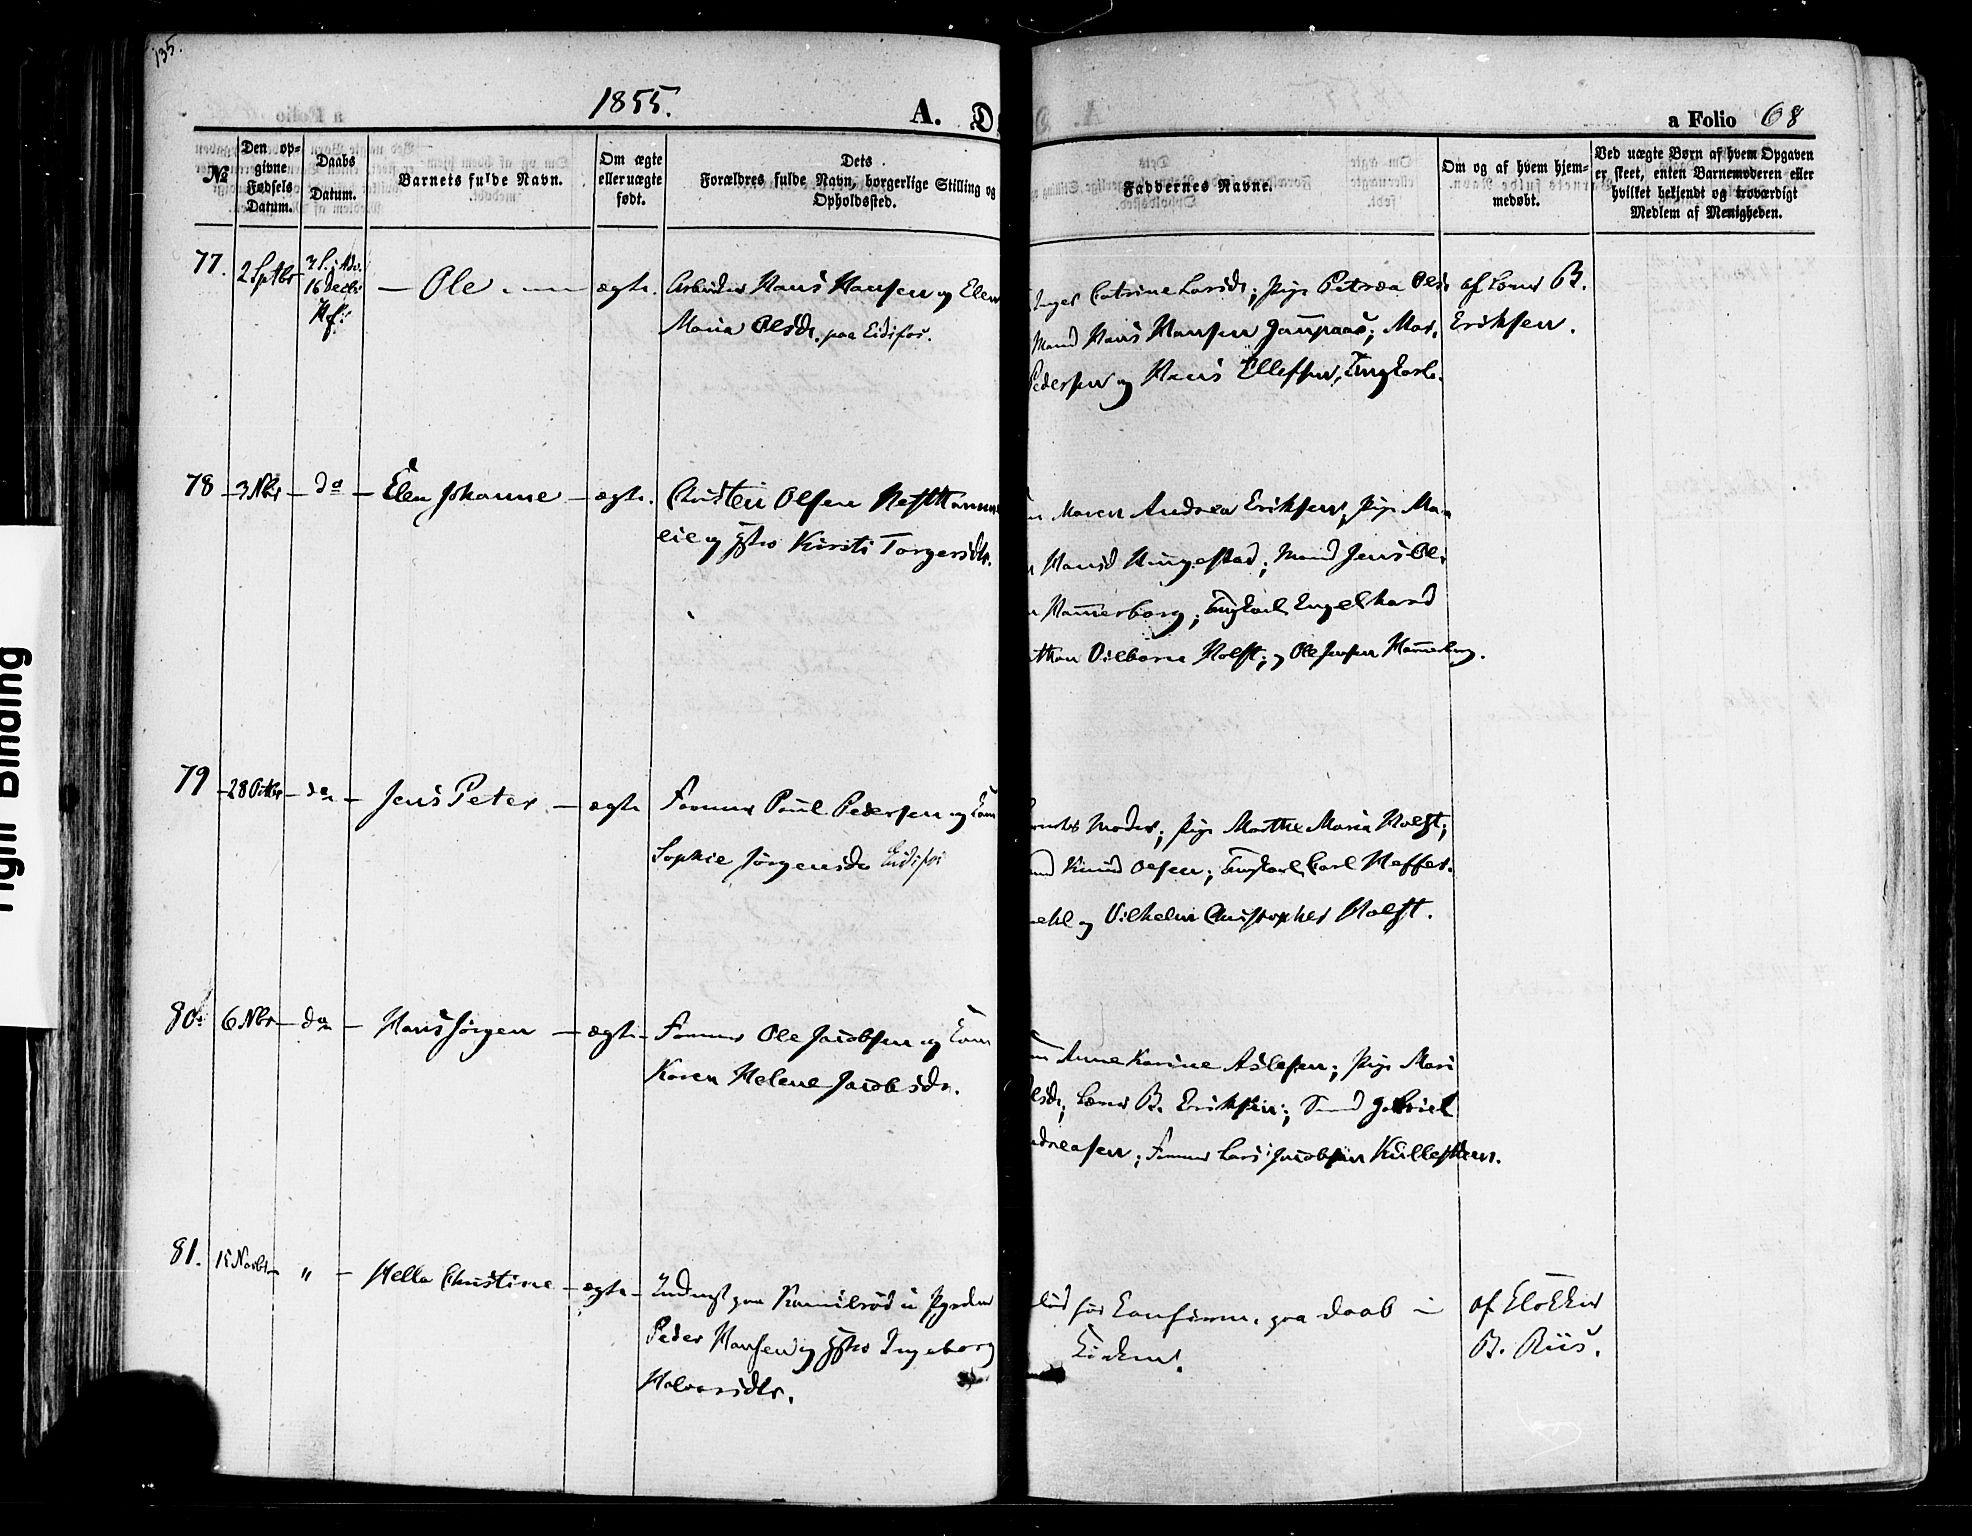 135.
1855.
A. D
a Folio 68
№
Den op-
givne
Fødsels
Datum.
Daabs
Datum.
Barnets fulde Navn.
Om ægte
eller uægte
født.
Dets
Forældres fulde Navn, borgerlige Stilling og
Opholdssted.
Faddernes Navne.
Om og af hvem hjem-
medøbt.
Ved uægte Børn af hvem Opgaven
er skeet, enten Barnemoderen eller
hvilket bekjendt og troværdigt
Medlem af Menigheden.
77.
2 Sptbr
3 S. i Adv.
16 Decbr
Hof:
— Ole
ægte.
Arbeider Hans Hansen og Elen
Maria Olsdr. paa Eidsfos.
Inger Catrine Larsdr; Pige Petrea Olsdr
Mand Hans Hansen ; Mar.
Pedersen og Hans Ellefsen, Ungkarle.
af Lærer B.
Eriksen.
78
— 3 Nbr — do — Elen Johanne — ægte.
Christen Olsen
eie og Hstr Kirsti Torgersdtr.
Maren Andrea Eriksen, Pige Mar
Hansd Ringestad; Mand Jens Ol
Hammerborg; Ungkarl Engelhard
Holst; og Ole Jensen Hammerborg.
79
— 28 Octbr — do — Jens Peter — ægte
Former Poul Pedersen og Kone
Sophie Jørgensdr Eidsfos
Moder; Pige Marthe Maria Holst;
Knud Olsen; Ungkarl Carl Heffer
mehl og Vilhelm Christopher Holst.
80.
6 Nbr — do — Hans Jørgen — ægte —
Former Ole Jacobsen og Kone
Karen Helene Jacobsdr.
Anne Karine Aslesen; Pige Mari
lsdr; Lærer B. Eriksen; Smed Gabriel
ndreasen; Former Lars Jacobsen Kullestuen.
81.
15 Novbr — „ — Hella Christine — ægte —
Inderst paa
Peder Hansen og Hstr Ingeborg
Halvorsdtr.
død før Confirm. paa Daab i
Kirken.
af Klokker
B. Riis.
Tight Binding